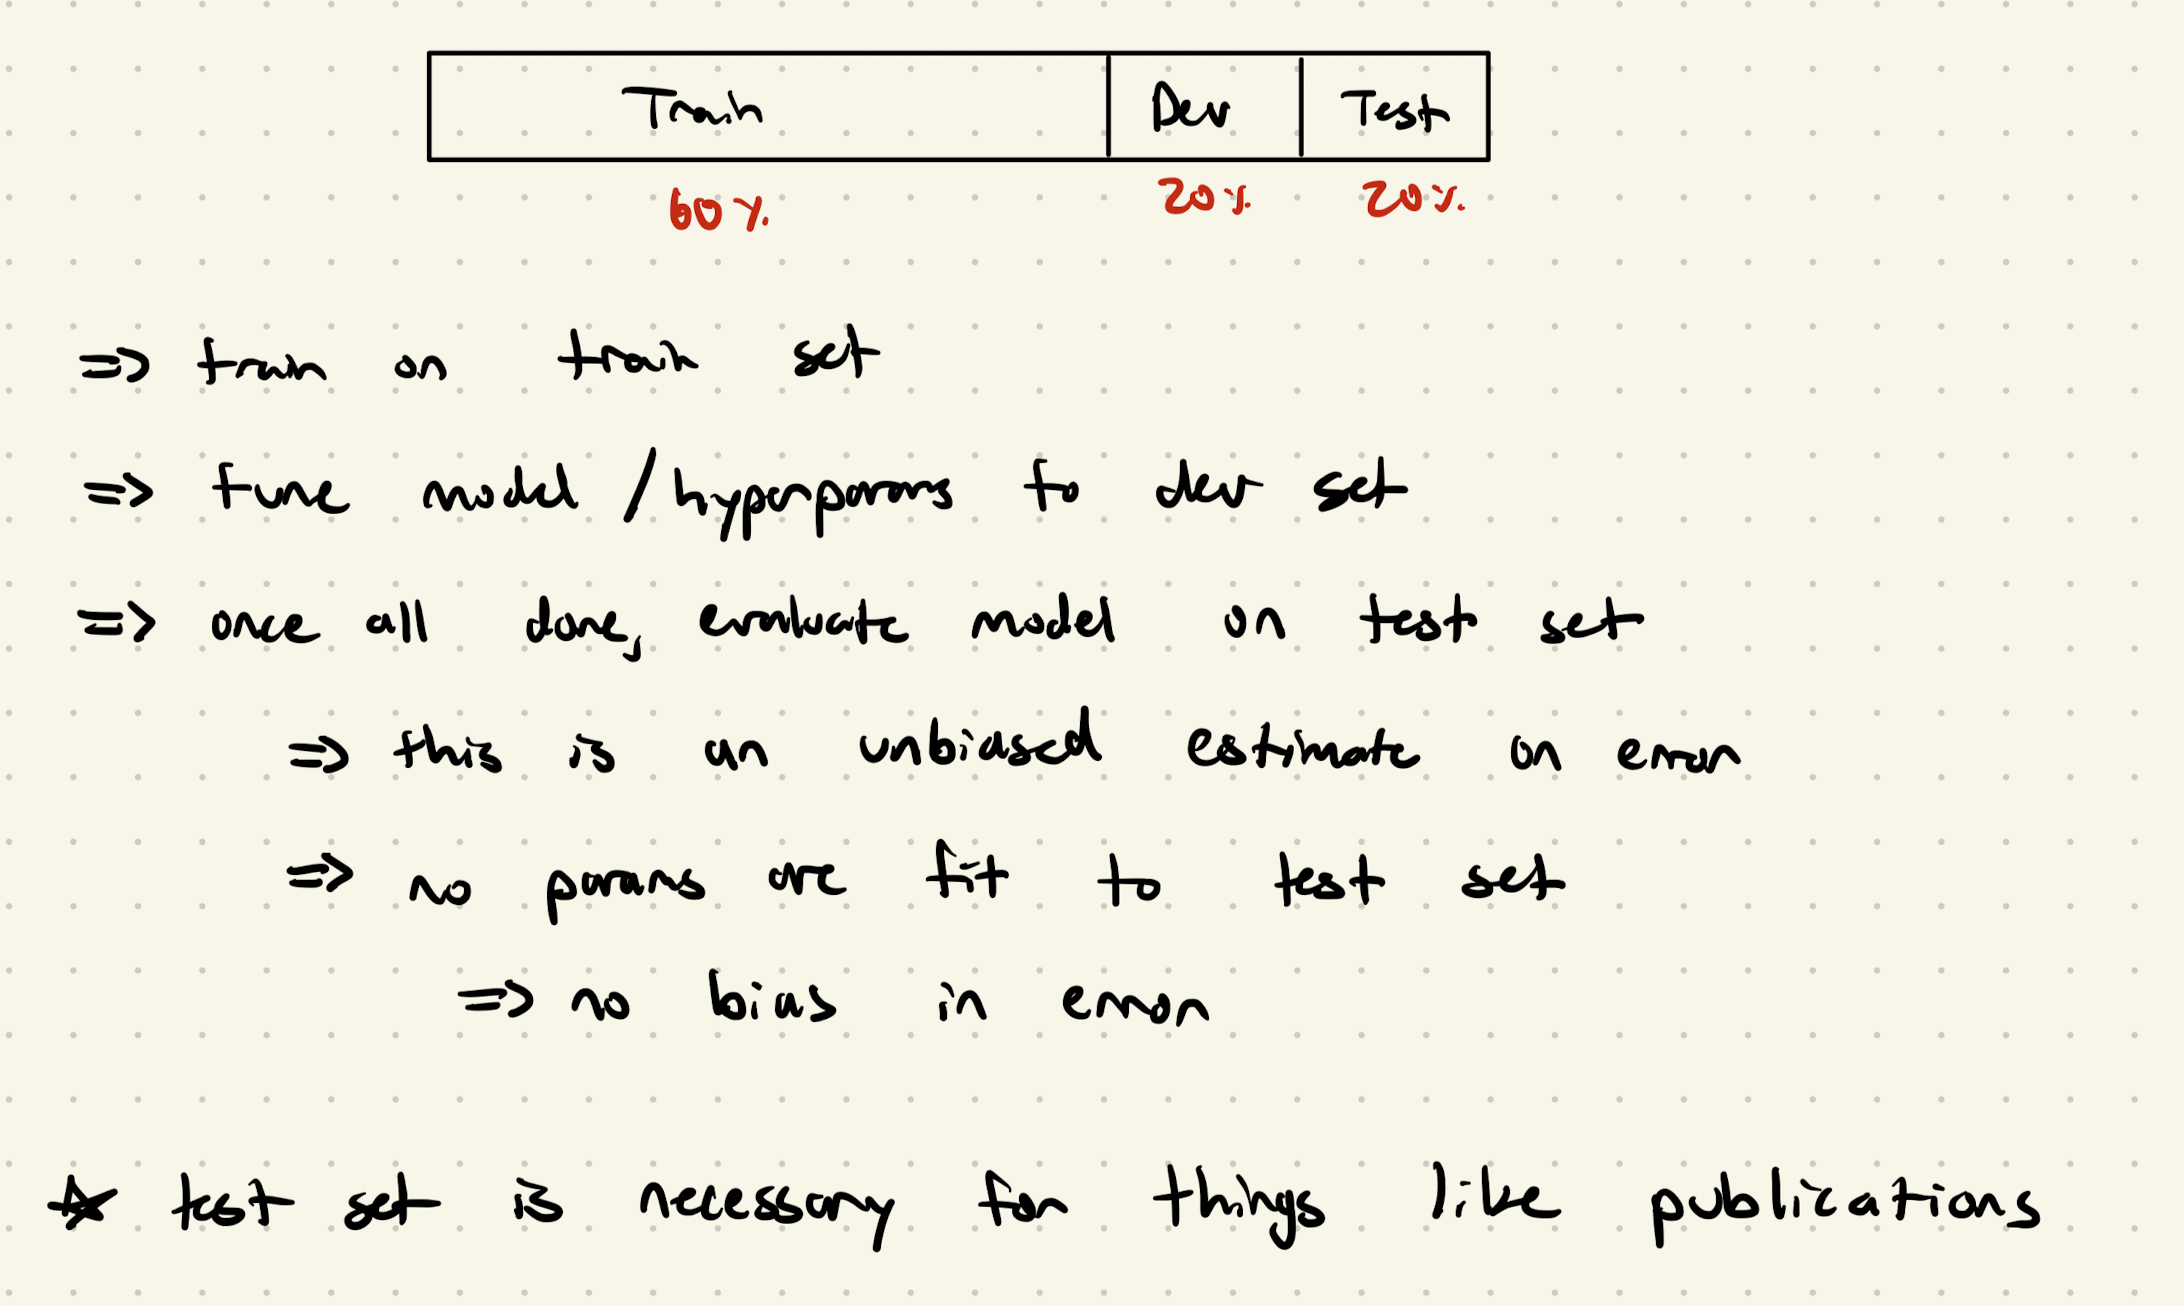 Train Dev Test
60% 20% 20%
=> train on train set
=> tune model / hyperparams to dev set
=> once all done, evaluate model on test set
=> this is an unbiased estimate on error
=> no params are fit to test set
=> no bias in error
☆ test set is necessary for things like publications